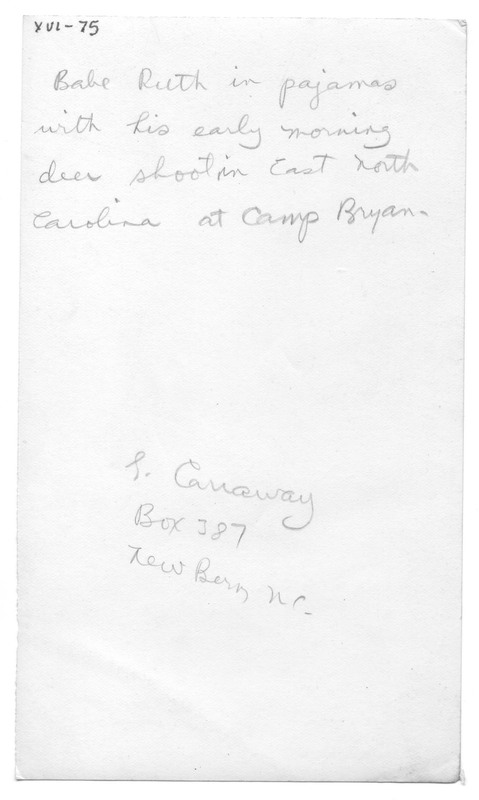 XVI-75
Babe Ruth in pajamas
with his early morning
deer shoot in East North
Carolina at Camp Bryan.
Carraway
Box 387
New Bern N.C.